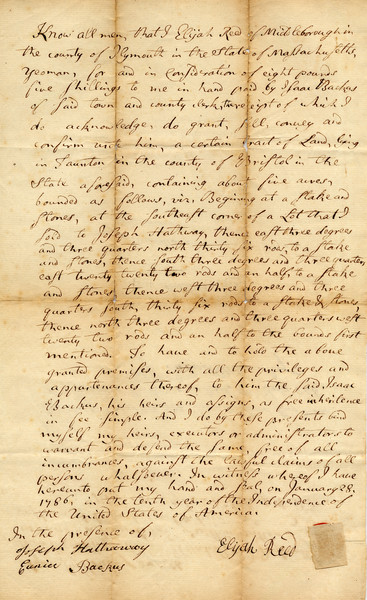 Know all men, that I Elijah Reed of Middleborough in
the county of Plymouth in the State of Massachusetts,
Yeoman, for and in consideration of eight pounds
five shillings to me in hand paid by Isaac Backus
of said town and county clerk, the receipt of which I
do acknowledge, do grant, sell, convey and
confirm unto him, a certain tract of Land, lying
in Taunton in the county of Bristol in the
State aforesaid, containing about five acres,
bounded as follows, viz. Begining at a stake and
stones, at the southeast corner of a Lot that I
sold to Joseph Hathway, thence east three degrees
and three quarters north thirty six rods, to a stake
and stones, thence south three degrees and three quarters
east twenty twenty two rods and an half to a stake
and stones, thence west three degrees and three
quarters south, thirty six rods to a stake & stones,
thence north three degrees and three quarters west
twenty two rods and an half to the bounds first
mentioned. To have and to hold the above
granted premises, with all the privileges and
appurtenances thereof, to him the said Isaac
Backus, his heirs and assigns, as free inheritence
in fee simple. And I do by these presents bind
myself my heirs, executors or administrators to
warrant and defend the same, free of all
incumbrances, against the lawful claims of all
persons whatsoever. In witness whereof I have
hereunto put my hand and seal, on January 28,
1786, in the tenth year of the Independence of
the United States of America.
In the presence of,
Joseph Hathaway
Eunice Backus
Elijah Reed